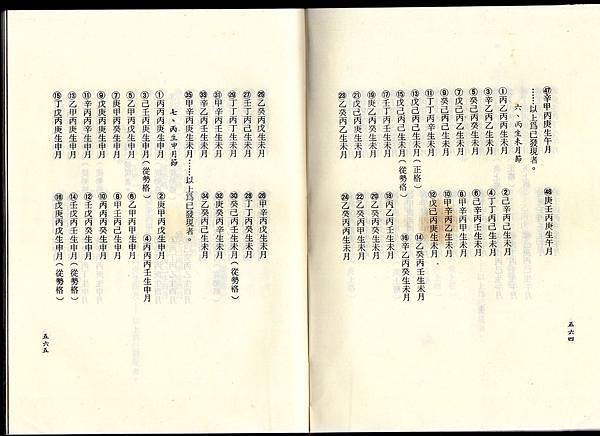 ㊼辛甲丙庚生午月
㊽庚壬丙庚生午月
……以上爲已發現者。
六、丙生未月節
①丙乙丙丙生未月
②己辛丙己生未月
③辛乙丙乙生未月
④丁丁丙己生未月
⑤癸己丙癸生未月
⑥己辛丙壬生未月
⑦戊己丙乙生未月
⑧辛甲丙甲生未月
⑨戊己丙癸生未月
⑩甲辛丙乙生未月
⑪丁丁丙辛生未月
⑫戊己丙庚生未月
⑬戊己丙戊生未月(正格)
⑭乙癸丙壬生未月
⑮戊己丙己生未月(從勢格)
⑯辛乙丙癸生未月
⑰壬丁丙壬生未月
⑱丙乙丙壬生未月
⑲庚乙丙戊生未月
⑳乙癸丙癸生未月
㉑戊己丙丁生未月
㉓乙癸丙乙生未月
㉔乙癸丙丙生未月
五六四
㉕乙癸丙戊生未月
㉖甲辛丙戊生未月
㉗壬丁丙己生未月
㉘丁庚丙癸生未月
㉙丁丁丙丁生未月
㉚癸己丙壬生未月(從勢格)
㉛丁丁丙壬生未月
㉜庚癸丙辛生未月
㉝辛乙丙壬生未月
㉞乙癸丙己生未月
㉟甲辛丙庚生未月……以上爲已發現者。
七、丙生申月節
①丙丙丙庚生申月
②庚甲丙戊生申月
③己壬丙庚生申月(從勢格)
④丙丙丙壬生申月
⑤乙甲丙戊生申月
⑥乙甲丙甲生申月
⑦庚甲丙癸生申月
⑧甲壬丙己生申月
⑨戊庚丙壬生申月
⑩丙丙丙癸生申月
⑪辛丙丙辛生申月
⑫壬戊丙辛生申月
⑬乙甲丙壬生申月
⑭壬戊丙壬生申月(從勢格)
⑮丁戊丙庚生申月
⑯戊庚丙戊生申月(從勢格)
五六五